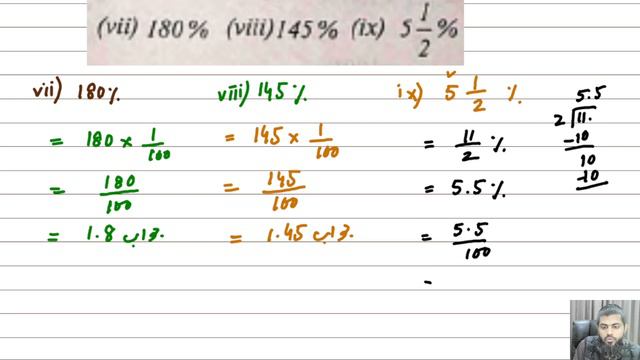 (vii) 180% (viii) 145% (ix) 5 1/2 %
vii) 180%
= 180 × 1/100
= 180/100
= 1.8 جواب
viii) 145%
= 145 × 1/100
= 145/100
= 1.45 جواب
ix) 5 1/2 %
= 11/2 %
= 5.5%
= 5.5/100
=
5.5
2 11.
-10
10
-10